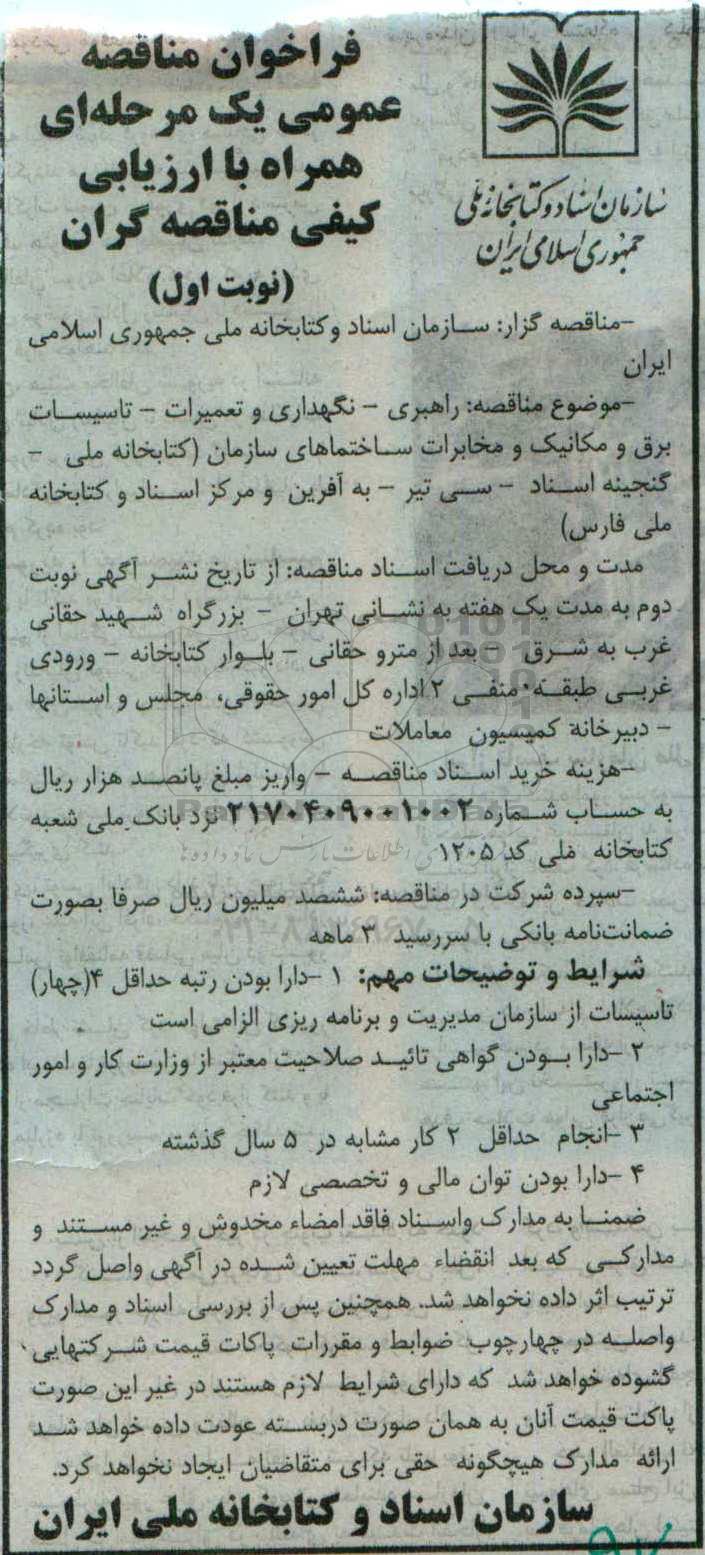 فراخوان مناقصه
عمومی یک مرحله‌ای
همراه با ارزیابی
کیفی مناقصه گران
(نوبت اول)
سازمان اسناد و کتابخانه ملی
جمهوری اسلامی ایران
-مناقصه گزار: سازمان اسناد وکتابخانه ملی جمهوری اسلامی
ایران
-موضوع مناقصه: راهبری – نگهداری و تعمیرات – تاسیسات
برق و مکانیک و مخابرات ساختماهای سازمان (کتابخانه ملی –
گنجینه اسناد – سی تیر – به آفرین و مرکز اسناد و کتابخانه
ملی فارس)
مدت و محل دریافت اسناد مناقصه: از تاریخ نشر آگهی نوبت
دوم به مدت یک هفته به نشانی تهران – بزرگراه شهید حقانی
غرب به شرق – بعد از مترو حقانی – بلوار کتابخانه – ورودی
غربی طبقه منفی ۲ اداره کل امور حقوقی، مجلس و استانها
– دبیرخانه کمیسیون معاملات
-هزینه خرید اسناد مناقصه – واریز مبلغ پانصد هزار ریال
به حساب شماره ۲۱۷۰۴۰۹۰۰۱۰۰۲ نزد بانک ملی شعبه
کتابخانه ملی کد ۱۲۰۵
-سپرده شرکت در مناقصه: ششصد میلیون ریال صرفا بصورت
ضمانت‌نامه بانکی با سررسید ۳ ماهه
شرایط و توضیحات مهم: ۱ -دارا بودن رتبه حداقل ۴(چهار)
تاسیسات از سازمان مدیریت و برنامه ریزی الزامی است
۲ -دارا بودن گواهی تائید صلاحیت معتبر از وزارت کار و امور
اجتماعی
۳ -انجام حداقل ۲ کار مشابه در ۵ سال گذشته
۴ -دارا بودن توان مالی و تخصصی لازم
ضمنا به مدارک واسناد فاقد امضاء مخدوش و غیر مستند و
مدارکی که بعد انقضاء مهلت تعیین شده در آگهی واصل گردد
ترتیب اثر داده نخواهد شد. همچنین پس از بررسی اسناد و مدارک
واصله در چهارچوب ضوابط و مقررات پاکات قیمت شرکتهایی
گشوده خواهد شد که دارای شرایط لازم هستند در غیر این صورت
پاکت قیمت آنان به همان صورت دربسته عودت داده خواهد شد
ارائه مدارک هیچگونه حقی برای متقاضیان ایجاد نخواهد کرد.
سازمان اسناد و کتابخانه ملی ایران